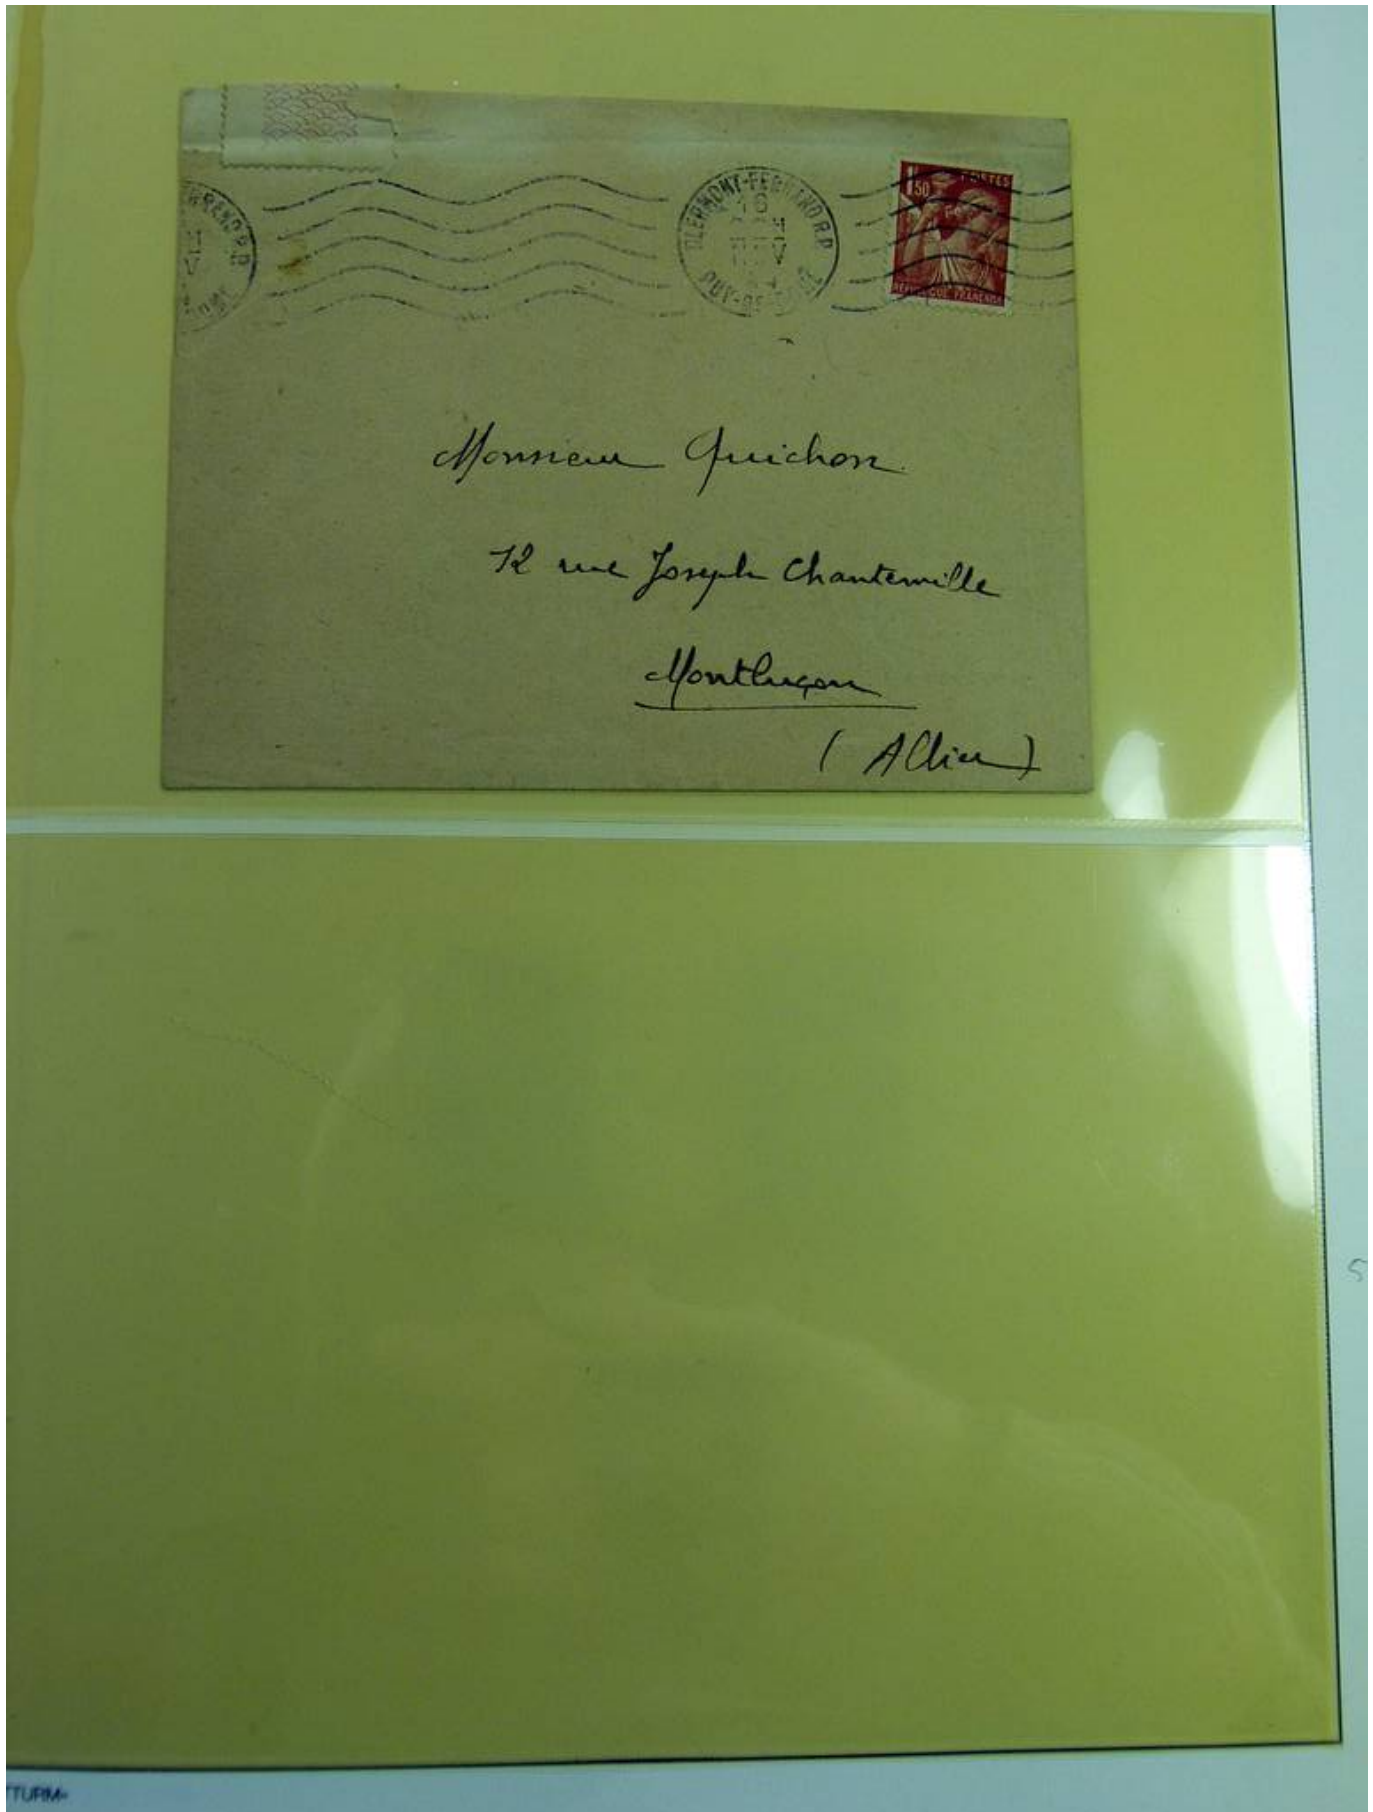 CLERMONT-FERRAND R.P.
PUY-DE-DOME
1F50
POSTES
REPUBLIQUE FRANCAISE
Monsieur Guichon
12 rue Joseph Chantemille
Montluçon
(Allier)
TTURM